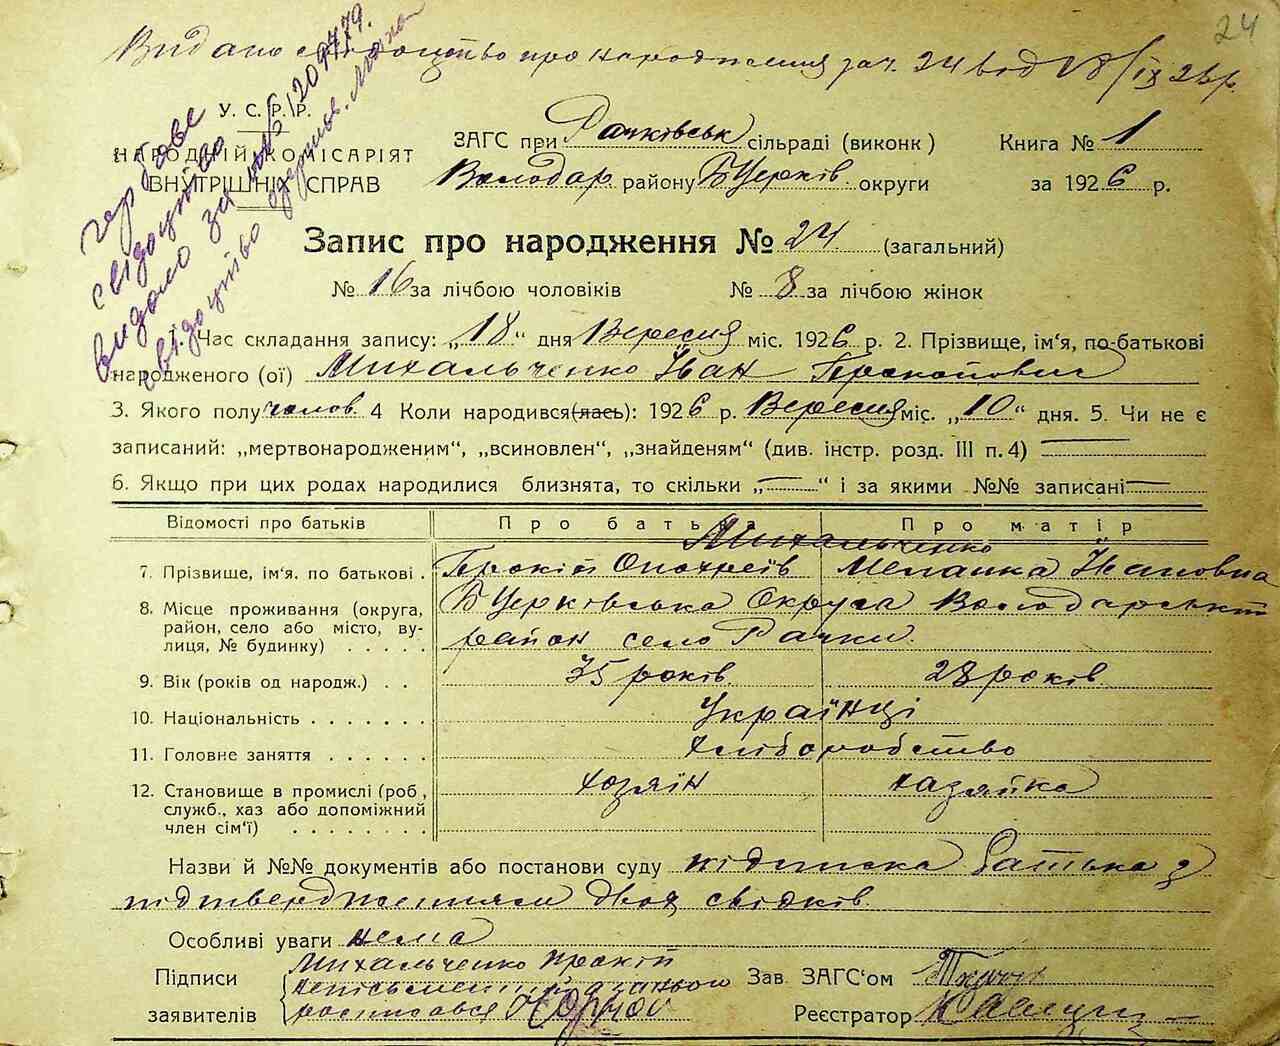 24
Видано свідоцтво про народження за ч. 24 від 18/ІХ 26 р.
гербове
свідоцтво
видано за №
свідоцтво
У. С. Р. Р.
НАРОДНІЙ КОМІСАРІЯТ
ВНУТРІШНІХ СПРАВ
ЗАГС при Рачківськ сільраді (виконк) Книга № 1
Володар. району Б Церків. округи за 1926 р.
Запис про народження № 24 (загальний)
№ 16 за лічбою чоловіків № 8 за лічбою жінок
1. Час складання запису: „18“ дня Вересня міс. 1926 р. 2. Прізвище, ім'я, по-батькові
народженого (ої) Михальченко Іван Прокопович
3. Якого полу чолов. 4 Коли народився(лась): 1926 р. Вересня міс. „10“ дня. 5. Чи не є
записаний: „мертвонародженим“, „всиновлен“, „знайденям“ (див. інстр. розд. III п. 4)
6. Якщо при цих родах народилися близнята, то скільки „—“ і за якими №№ записані —
Відомості про батьків Про батька Про матір
Михальченко
7. Прізвище, ім'я. по батькові . Прокіп Меланка Івановна
8. Місце проживання (округа, Б Церківська Округа Володарський
район, село або місто, ву- район село Рачки.
лиця, № будинку) . . . . .
9. Вік (років од народж.) . . 35 років 28 років
10. Національність . . . . . . . Українці
11. Головне заняття . . . . . . Хліборобство
12. Становище в промислі (роб, хозяїн хазяйка
служб., хаз або допоміжний
член сім'ї) . . . . . . . .
Назви й №№ документів або постанови суду підписка батька з
підтвердженням двох свідків.
Особливі уваги нема
Підписи Михальченко Прокіп Зав. ЗАГС'ом
неписьменний а за нього
заявителів росписався Реєстратор